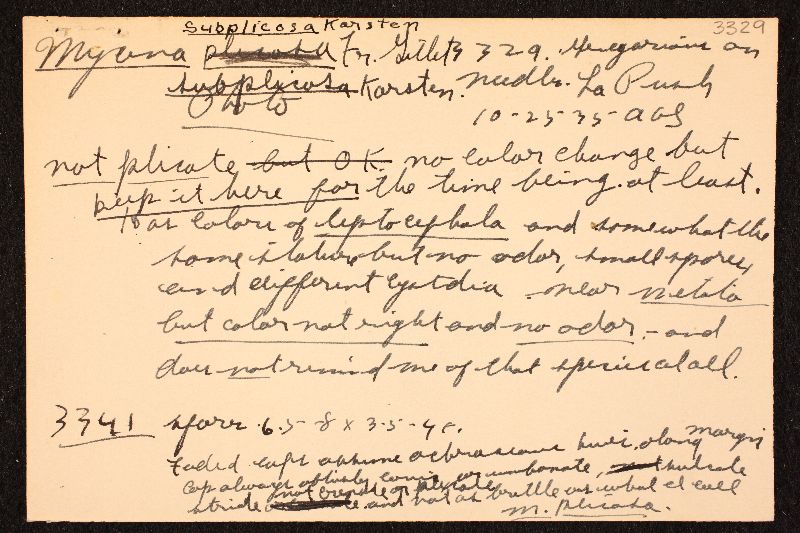 Subplicosa Karsten
3329
Mycena plicosa Fr. Gillet 3329. Gregarious on
subplicosa Karsten. needles. La Push
10-25-35-AHS
not plicate but OK no color change but
keep it here for the time being at least.
Has colors of leptocephala and somewhat the
same stature but no odor, small spores
and different cystidia near metata
but color not right and no odor, - and
does not remind me of that species at all.
3341 spores 6.5-8 x 3.5-4
Faded caps assume along margin
cap always obtusely conic or umbonate, sulcate
striate not crenate or plicate and not as brittle as what I call
M. plicosa.